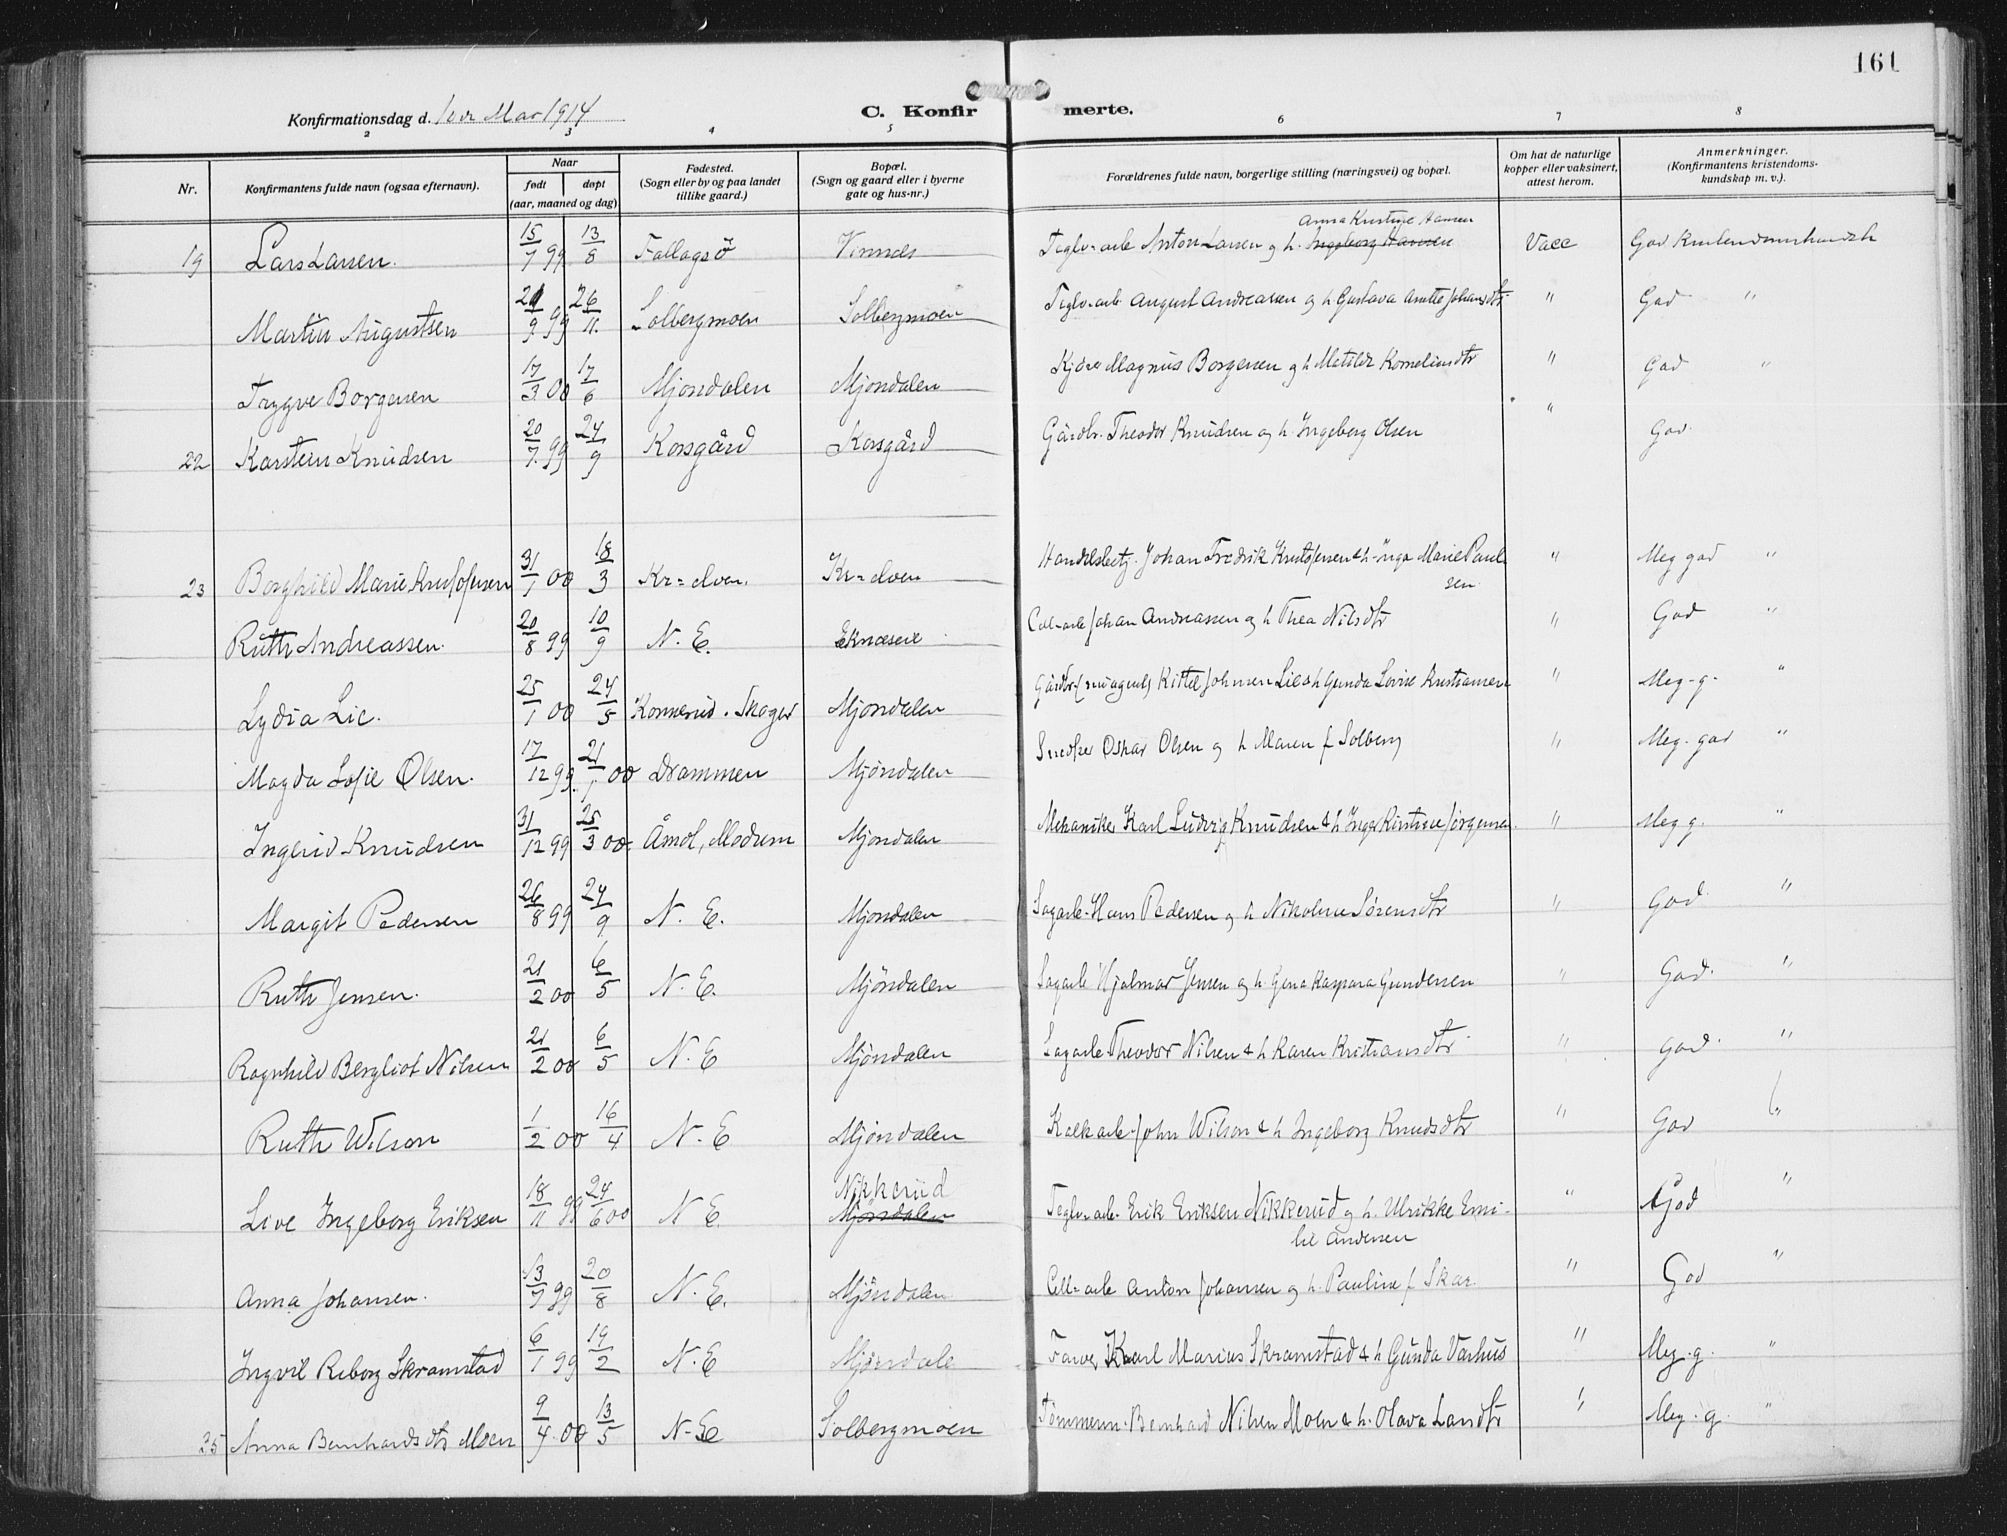 161
Konfirmationsdag d. 1914
C. Konfirmerte.
2 3 4 5 6 7 8
Nr.
Konfirmantens fulde navn (ogsaa efternavn).
Naar
født døpt
(aar, maaned og dag)
Fødested.
(Sogn eller by og paa landet
tillike gaard.)
Bopæl.
(Sogn og gaard eller i byerne
gate og hus-nr.)
Forældrenes fulde navn, borgerlige stilling (næringsvei) og bopæl.
Om hat de naturlige
kopper eller vaksinert,
attest herom.
Anmerkninger.
(Konfirmantens kristendoms-
kundskap m. v.).
Anna Kristine Hansen
19 Lars Larsen. 15/7 99 13/8 Vinnes Teglv-arb Anton Larsen og h. Ingeborg Hansen Vacc God
Martin Augustsen 99 26/11. Solbergmoen Solbergmoen Teglv-arb August Andreasen og h Gustava " God "
Trygve Borgersen 17/3 00 17/6 Mjondalen Mjondalen Magnus Borgersen og h Matilde " God "
22 Karsten Knudsen 20/7. 99 24/9 Korsgård Korsgård Gårdbr. Theodor Knudsen og h. Ingeborg Olsen " God.
23 Borghild Marie Kristofersen 31/1 00 18/3 Kr=elven. Kr=elven Johan Fredrik Kristofersen & h. Inga Marie Paul-
sen " Meg god "
Ruth Andreassen. 20/8 99 10/9 N. E. Eknæseie Cell-arb Johan Andreassen og h Thea Nilsdtr " God "
Lydia Lie. 25/1 00 24/5 Konnerud. Skoger Mjondalen Kittel Johnsen Lie & h Gunda " Meg-g. "
Magda Sofie Olsen. 17/12 99. 21/1 00 Drammen Mjöndalen Snedker Oskar Olsen og h Maren f Solberg " Meg. god "
Ingerid Knudsen 31/12 99 25/3 00. Åmot, Modum Mjondalen Mekaniker Karl Ludvig Knudsen & h " Meg g. "
Margit Pedersen 26/8 99 24/9 N. E. Mjondalen Sagarb. Hans Pedersen og h Nikoline Sörensdtr " God "
Ruth Jensen. 21/2 00 6/5 N. E. Mjöndalen Sagarb Hjalmar Jensen og h. Gina Kaspara Gundersen " God. "
Ragnhild Bergliot Nilsen 21/2 00 6/5 N. E Mjöndalen Sagarb Theodor Nilsen & h Karen Kristiansdtr " God. "
Ruth Wilson 1/2 00 16/4 N. E Mjöndalen Kalkarb John Wilson & h Ingeborg Knudsdtr " God "
Nikkerud
Live Ingeborg Eriksen 18/11 99 24/6 00 N E. Mjöndalen Teglv-arb. Erik Eriksen Nikkerud og h. Ulrikke Emi-
lie Andersen " God "
Anna Johansen. 13/7 99 20/8 N. E. Mjöndalen Cell-arb Anton Johansen og h. Pauline f Skar. " God "
Ingvil Reborg Skramstad 6/1 99 19/2 N. E Mjöndale Farver Karl Marius Skramstad & h Gunda Varhus " Meg. g. "
35 Anna Bernhardsdtr Moen 9/4. 00 13/5 N-E Solbergmoen Tömmerm. Bernhard Nilsen Moen & h. Olava Larsdtr " Meg. g. "